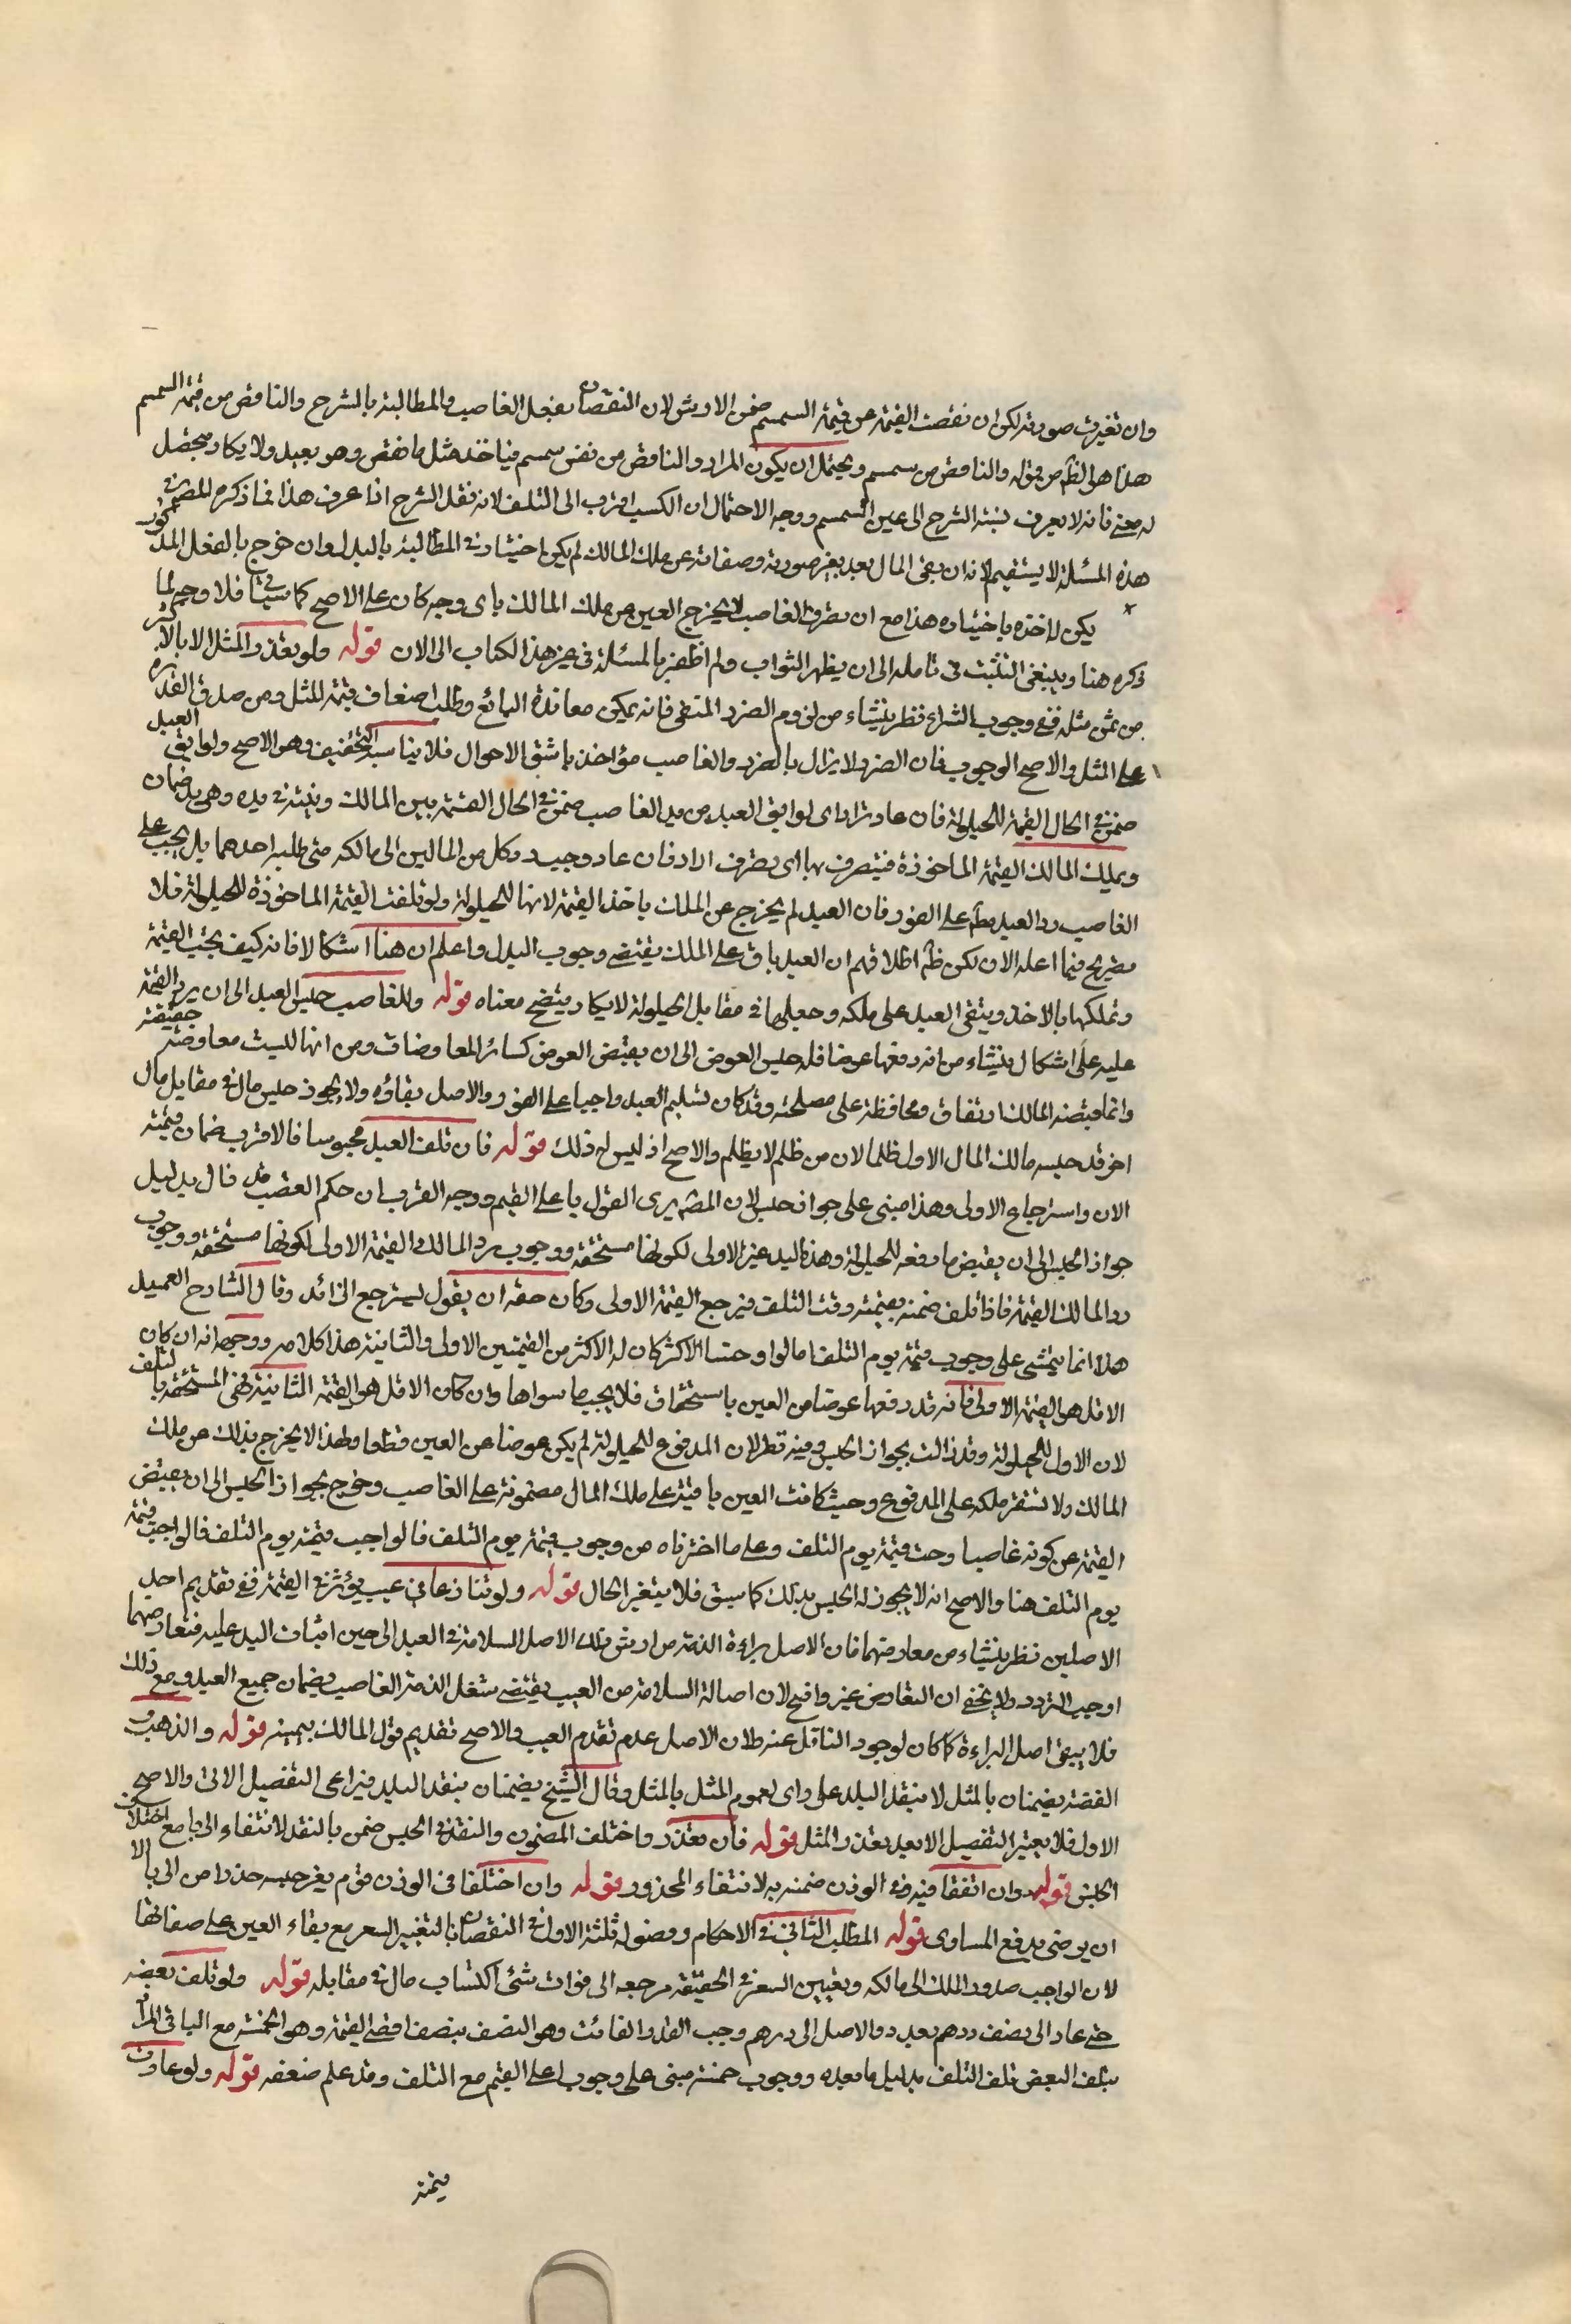 وان تغيرت صورته لكن ان نقصت القيمة عن قيمة السمسم ضمن الارش لان النقصان بفعل الغاصب والمطالبة بالشرح والناقص من قيمة السمسم
هذا هو الظ من قوله والناقص من سمسم ويحتمل ان يكون المراد والناقص من نفس سمسم فياخذ مثل ما نقص وهو بعيد ولا يكاد يحصل
له معنى فانه لا يعرف نسبة الشرح الى عين السمسم ووجه الاحتمال ان الكسب اقرب الى التلف لانه ثفل الشرح اذا عرف هذا فما ذكره المص في
هذه المسئلة لا يستقيم لانه ان بقى المال بعد تغير صورته وصفاته عن ملك المالك لم يكن اختياره في المطالبة بالبدل وان خرج بالفعل المذكور
يكن لاخذه باختياره هذا مع ان تصرف الغاصب لا يخرج العين عن ملك المالك باى وجه كان على الاصح كما سيأتي فلا وجه لما
ذكره هنا وينبغى التثبت فى تامله الى ان يظهر الثواب ولم اظفر بالمسئلة فى غير هذا الكتاب الى الان قوله ولو تعذر المثل الا بالاكثر
من ثمن مثله ففى وجوب الشراء نظر ينشاء من لزوم الضرر المنفى فانه يمكن معاندة البائع وطلب اضعاف قيمة المثل ومن صدق القدرة
على المثل والاصح الوجوب فان الضرر لا يزال بالضرر والغاصب مؤاخذ باشق الاحوال فلا يناسبه التخفيف وهو الاصح ولو ابق العبد
ضمن في الحال القيمة للحيلولة فان عاد ترادا اى لو ابق العبد من يد الغاصب ضمن في الحال القيمة بين المالك وبينه في يده وهى بدل ضمان
ويملك المالك القيمة الماخوذة فيتصرف بها اى تصرف اراد فان عاد وجب رد كل من المالين الى مالكه متى طلبه احدهما بل يجب على
الغاصب رد العبد مط على الفور فان العبد لم يخرج عن الملك باخذ القيمة لانها للحيلولة ولو تلفت القيمة الماخوذة للحيلولة فلا
تصريح فيما اعلم الان لكن ظ اطلاقهم ان العبد باق على الملك يقتضى وجوب البدل واعلم ان هنا اشكالا فانه كيف يجب القيمة
وتملكها بالاخذ ويبقى العبد على ملكه وجعلها في مقابل الحيلولة لا يكاد يتضح معناه قوله وللغاصب حبس العبد الى ان يرد القيمة
عليه على اشكال ينشاء من انه دفعها عوضا فله حبس العوض الى ان يقبض العوض كسائر المعاوضات ومن انها ليست معاوضة حقيقة
وانما قبضه المالك ارتفاق ومحافظة على مصلحته وقد كان تسليم العبد واجبا على الفور والاصل بقاؤه ولا يجوز حبس مال في مقابل مال
اخر قد حبسه مالك المال الاول ظلما لان من ظلم لا يظلم والاصح اذ ليس له ذلك قوله فان تلف العبد محبوسا فالاقرب ضمان قيمته
الان واسترجاع الاولى وهذا مبنى على جواز حبس لان المص يرى القول باعلى القيم ووجه القرب ان حكم الغصب قد زال بدليل
جواز الحبس الى ان يقبض ما دفعه للحيلولة وهذه اليد غير الاولى لكونها مستحقة ووجوب رد المالك القيمة الاولى لكونها مستحقة ووجوب
رد المالك القيمة فاذا تلف ضمنه بقيمته وقت التلف فيرجع القيمة الاولى وكان حقه ان يقول يسترجع الزائد وقال الشارح العميد
هذا انما يتمشى على وجوب قيمة يوم التلف اما لو اوجبنا الاكثر كان له الاكثر من القيمتين الاولى والثانية هذا كلامه ووجهه انه ان كان
الاقل هو القيمة الاولى فانه قد دفعها عوضا من العين باستحقاق فلا يجب ما سواها وان كان الاقل هو القيمة الثانية فهى المستحقة بالتلف
لان الاول للحيلولة وقد زالت بجواز الحبس وفيه نظر لان المدفوع للحيلولة لم يكن عوضا عن العين قطعا ولهذا لا يخرج بذلك عن ملك
المالك ولا تستقر ملكه على المدفوع وحيث كانت العين باقية على ملك المال مضمونة على الغاصب وخرج بجواز الحبس الى ان يقبض
القيمة عن كونه غاصبا وجبت قيمة يوم التلف وعلى ما اخترناه من وجوب قيمة يوم التلف فالواجب قيمة يوم التلف فالواجب قيمة
يوم التلف هنا والاصح انه لا يجوز له الحبس بذلك كما سبق فلا يتغير الحال قوله ولو تنازعا فى عيب يؤثر في القيمة ففى تقديم احد
الاصلين نظر ينشاء من معارضتهما فان الاصل براءة الذمة من ارش ذلك والاصل السلامة في العبد الى حين اثبات اليد عليه فتعارضهما
اوجب التردد ولا يخفى ان التعارض غير واقع لان اصالة السلامة من العيب يقتضى شغل الذمة الغاصب بضمان جميع العبد ومع ذلك
فلا يبقى اصل البراءة كما كان لوجود الناقل عنه ولان الاصل عدم تقدم العيب والاصح تقديم قول المالك بيمينه قوله والذهب و
الفضة يضمنان بالمثل لا بنقد البلد على راى لعموم المثل بالمثل وقال الشيخ يضمنان بنقد البلد فيراعى التفصيل الاتى والاصح
الاول فلا يعتبر التفصيل الا بعد تعذر المثل قوله فان تعذر واختلف المضمون والنقد في الجنس ضمن بالنقد لانتفاء الربا مع اختلاف
الجنس قوله وان اتفقا فيه وفي الوزن ضمنه به لانتفاء المحذور قوله وان اختلفا فى الوزن قوم بغير جنسه حذرا من الربا الا
ان يرضى بدفع المساوى قوله المطلب الثانى في الاحكام وفصوله ثلثة الاول في النقصان بالتغيير السعر مع بقاء العين على صفاتها
لان الواجب صدود الملك الى مالكه وتغيير السعر في الحقيقة مرجعه الى فوات شئ اكتساب مال في مقابله قوله ولو تلف بعضه
حتى عاد الى نصف درهم بعد رد الاصل الى درهم وجب القدر الفائت وهو النصف بنصف اقصى القيمة وهو الخمسة مع الباقى المراد
بتلف البعض تلف التلف بدليل ما بعده ووجوب خمسة مبنى على وجوب اعلى القيم مع التلف وقد علم ضعفه قوله ولو عادت
قيمته